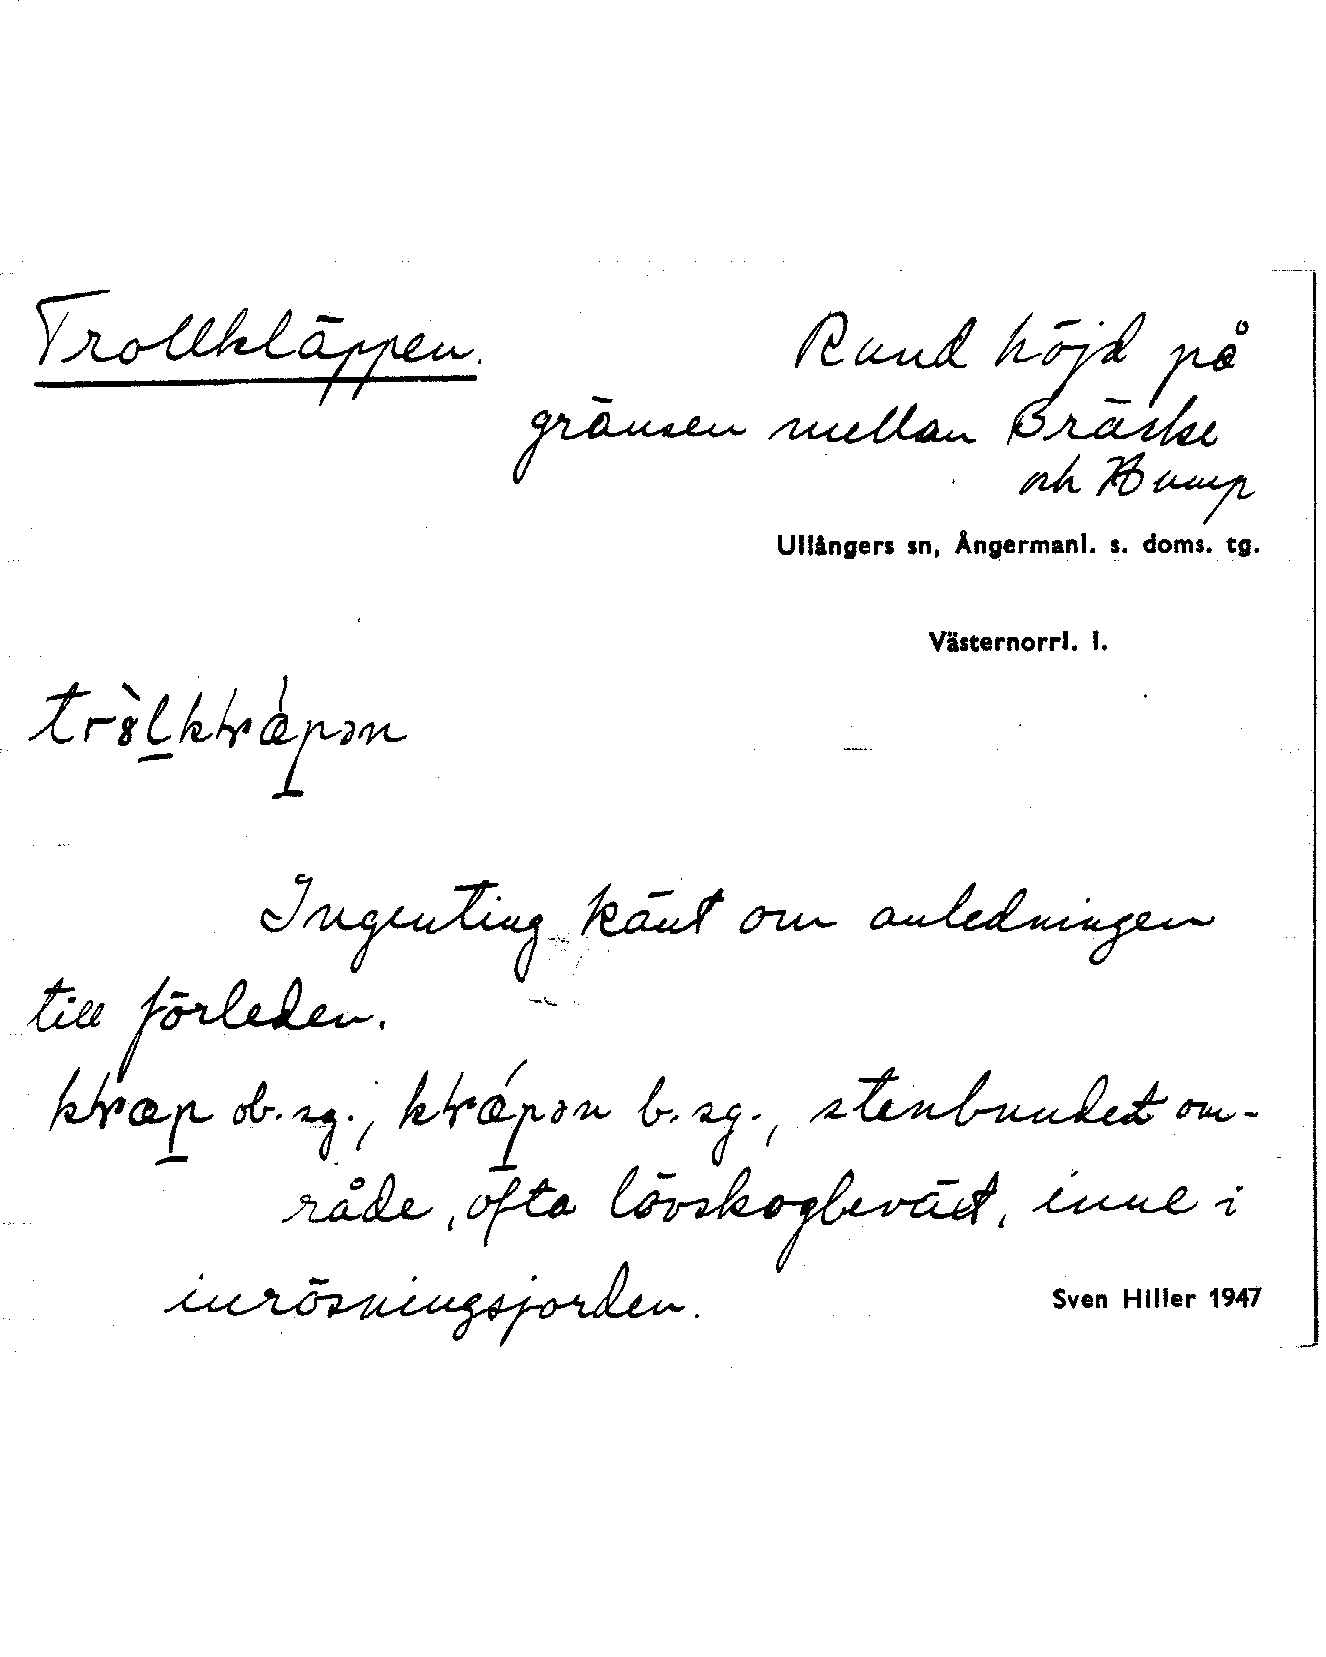 Trollkläppen. Rund höjd på
gränsen mellan Bräcke
och Hump
Ullångers sn, Ångermanl. s. doms. tg.
Västernorrl. l.
Ingenting känt om anledningen
till förleden.
ob. sg., b. sg., stenbundet om-
råde, ofta lövskogbeväxt, inne i
inrösningsjorden.
Sven Hiller 1947